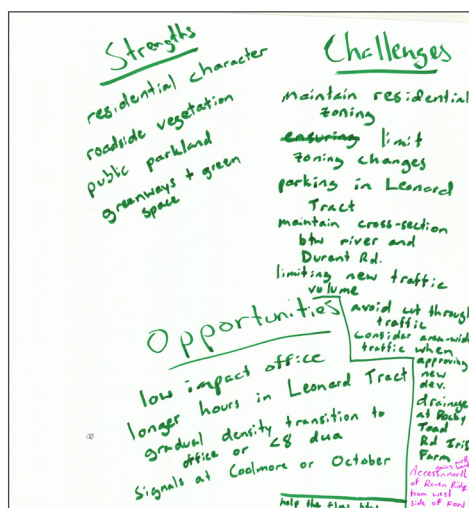 Strengths
residential character
roadside vegetation
public parkland
greenways + green
space
Challenges
maintain residential
zoning
ensuring limit
zoning changes
parking in Leonard
Tract
maintain cross-section
btw river and
Durant Rd.
limiting new traffic
volume
avoid cut through
traffic
consider area-wide
traffic when
approving
new
dev.
drainage
at Rocky
Toad
Rd Iris
Farm
Access north
of Raven Ridge
from west
side of
Opportunities
low impact office
longer hours in Leonard Tract
gradual density transition to
office or <8 dua
Signals at Coolmore or October
help the flow btw